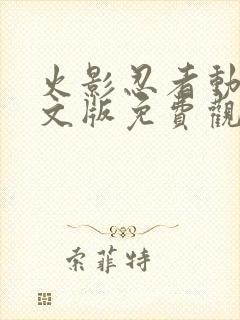 火影忍者動
文版免費觀
索菲特